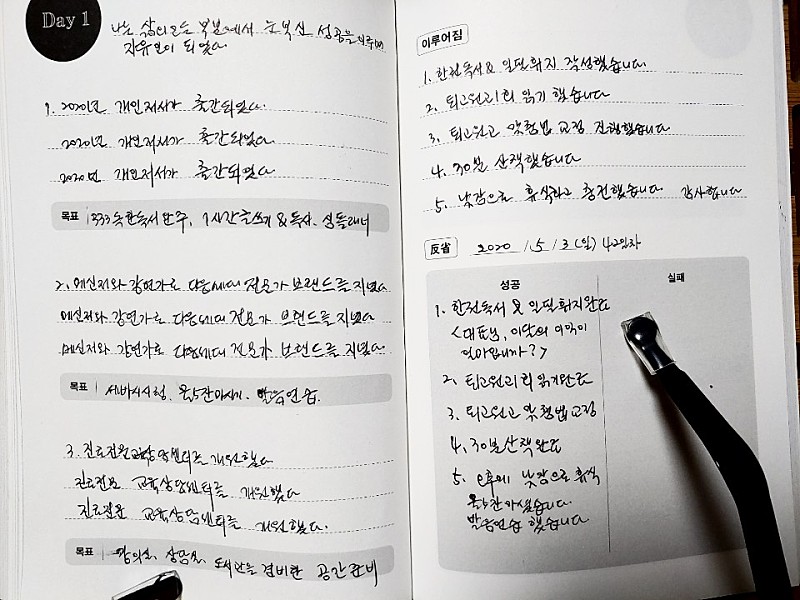 Day 1
나는 삶의 모든 부분에서 눈부신 성공을 이루어
자유인이 되었다
1. 2020년 개인저서가 출간되었다.
2020년 개인저서가 출간되었다.
2020년 개인저서가 출간되었다.
목표 333 독한독서완수, 1시간글쓰기 & 독서, 성품래너
2. 메신저와 강연가로 다음세대 전문가 브랜드를 지녔다
메신저와 강연가로 다음세대 전문가 브랜드를 지녔다
메신저와 강연가로 다음세대 전문가 브랜드를 지녔다.
목표 세바시시청, 물5잔마시기, 발음연습.
3. 진로전문 교육상담센터를 개원했다
진로전문 교육상담센터를 개원했다
진로전문 교육상담센터를 개원했다.
목표 강의실, 상담실, 도서관을 겸비한 공간준비
이루어짐
1. 한권독서 & 일필휘지 작성했습니다
2. 퇴고원고1회 읽기 했습니다
3. 퇴고원고 맞춤법 교정 진행했습니다
4. 30분 산책했습니다
5. 낮잠으로 휴식하고 충전했습니다 감사합니다
反省 2020 . 5 . 3 (일) 42일차
성공 실패
1. 한권독서 & 일필휘지완료
<대표님, 이달의 이익이
얼마입니까?>
2. 퇴고원고1회 읽기완료
3. 퇴고원고 맞춤법 교정
4. 30분산책완료
5. 오후에 낮잠으로 휴식
물5잔마셨습니다.
발음연습 했습니다